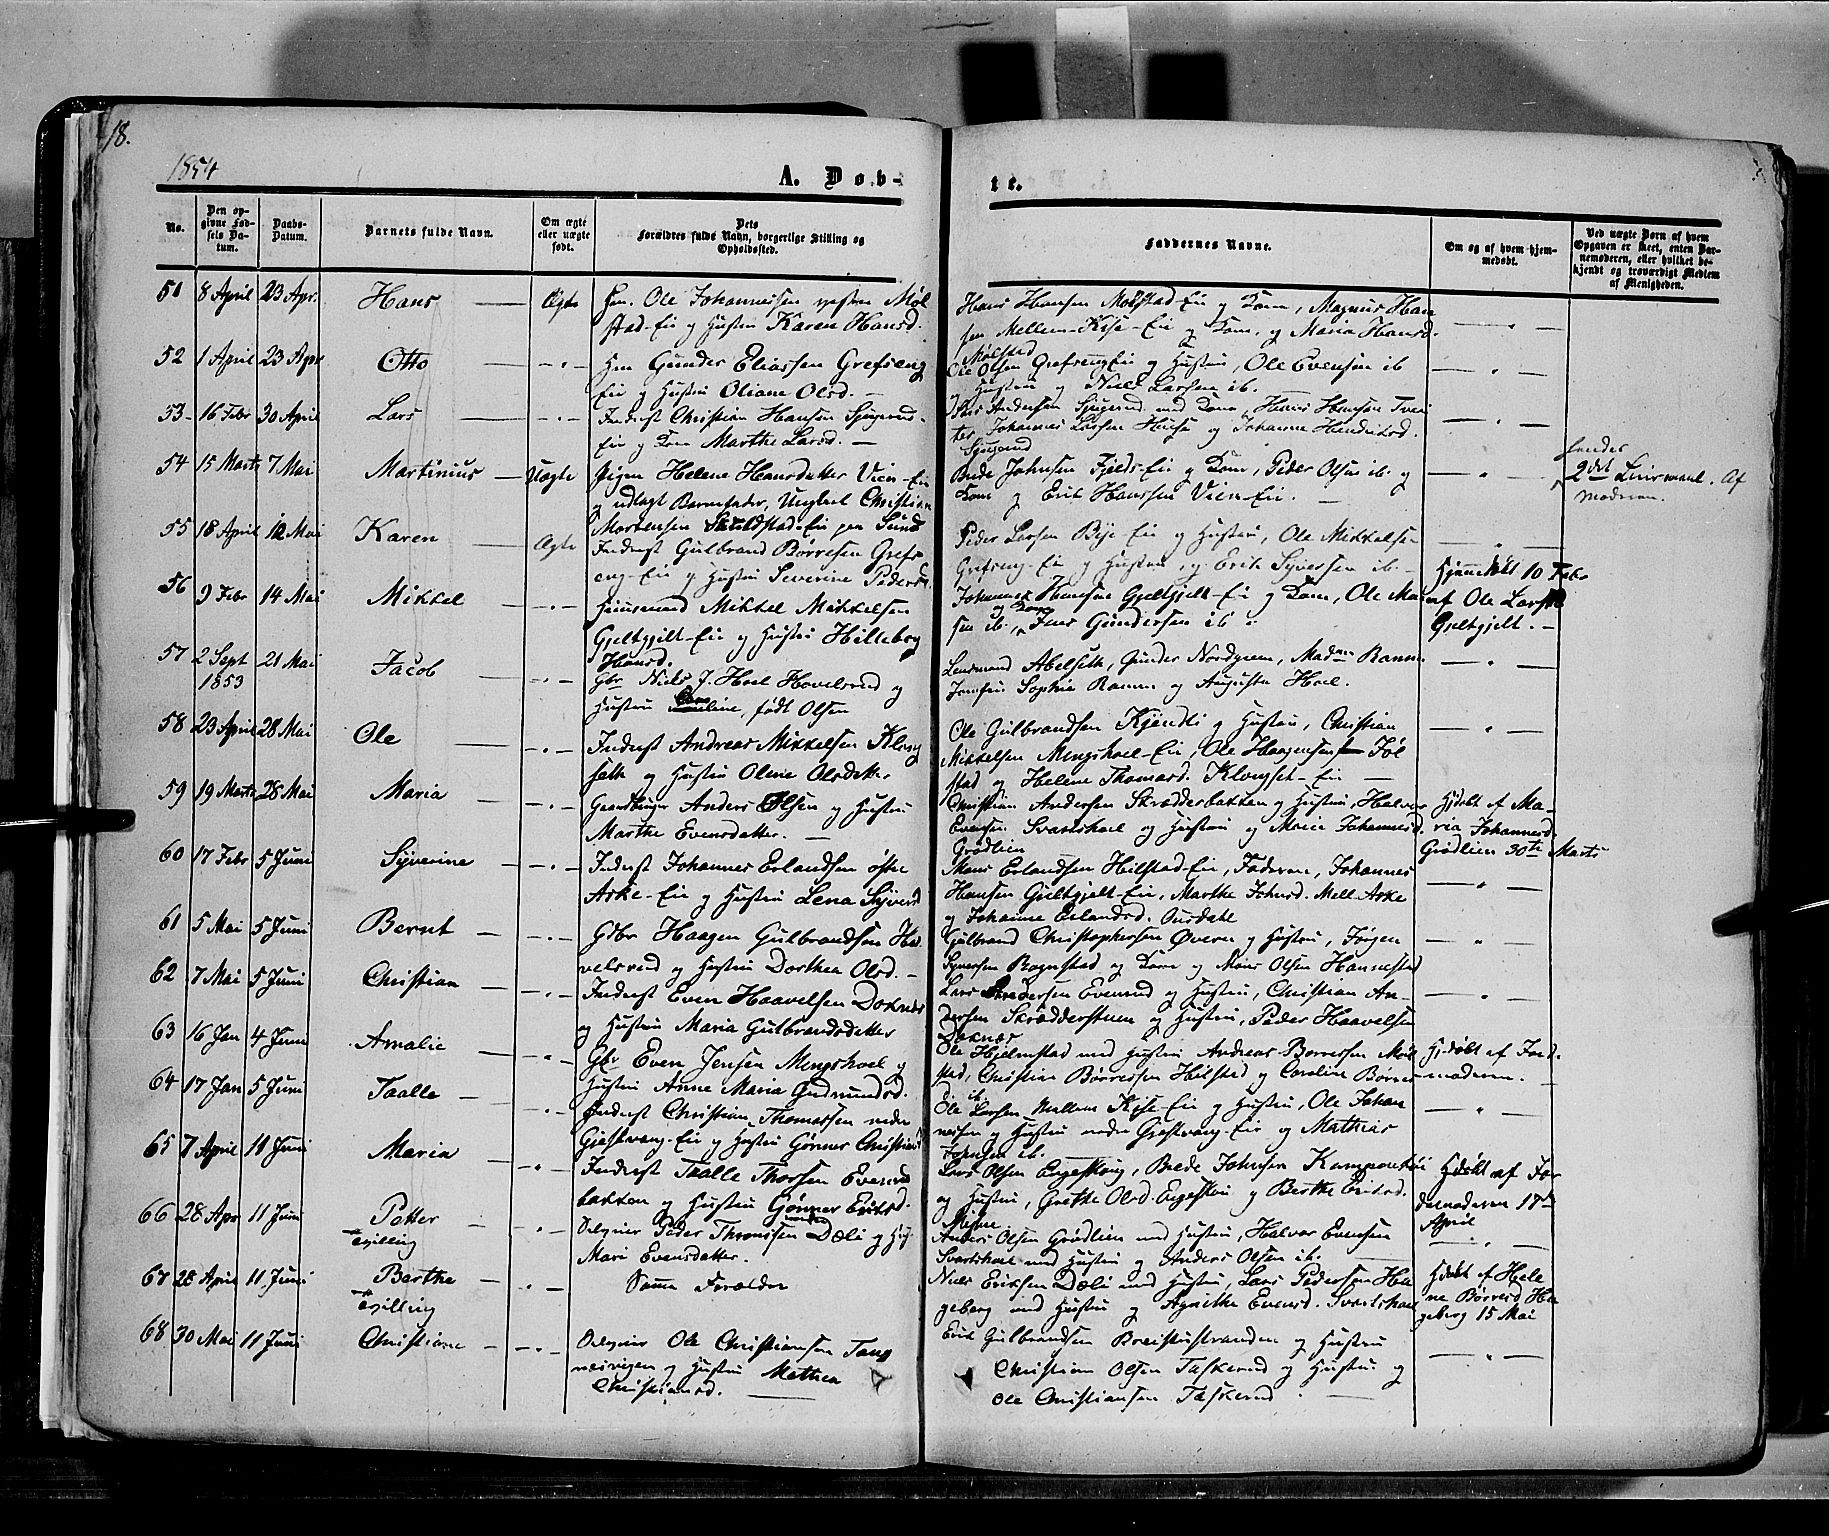 18.
1854
A. Døb-
te.
No.
Den op-
givne Fød-
sels Da-
tum.
Daabs-
Datum.
Barnets fulde Navn.
Om ægte
eller uægte
født.
Dets
Forældres fulde Navn, borgerlige Stilling og
Opholdssted.
Faddernes Navne.
Om og af hvem hjem-
medøbt.
Ved uægte Børn af hvem
Opgaven er skeet, enten Bar-
nemoderen, eller hvilket be-
kjendt og troværdigt Medlem
af Menigheden.
51 8 April 23 Apr. Hans Ægte Ole Johannessen Møl
stad-Eie og Hustru Karen Hansd.
Hans Hansen Molstad-Eie og Kone, Magnus Han
sen Mellem-Kise-Eie og Kone, og Maria Hansd.
Mølstad
52 1 April 23 Apr Otto Gunder Eliassen Grefseng
Eie og Hustru Oliane Olsd.
Ole Olsen Grefseng Eie og Hustru, Ole Evensen ib
og Hustru og Niels Larsen ib.
53 16 Febr 30 April Lars Inderst Christian Hansen
Eie og Kone Marthe Larsd.
Andersen med Kone, Hans Hansen
Johannes Larsen og Johanne Hendriksd.
54 15 Marts 7 Mai Martinius Uægte Pigen Helene Hansdatter Vien-Eie
og udlagt Barnefader, Ungkarl Christian
Mortensen
Brede Johnsen Fjelds-Eie og Kone, Peder Olsen ib. og
Kone og Erik Hanssen Vien-Eie.
2det Leiermaal. Af
Moderen.
55 18 April 12 Mai Karen Ægte Inderst Gulbrand Børresen Grefs
eng-Eie og Hustru Severine Pedersd.
Peder Larsen Bye Eie og Hustru, Ole Mikkelse
Grefseng-Eie og Hustru, og Erik Syversen ib.
56 9 Febr 14 Mai Mikkel Huusmand Mikkel Mikkelsen
Gjeltgjelt-Eie og Hustru Hilleborg
Hansd.
Johannes Hansen Gjeltgjelt-Eie og Kone, Ole
sen ib. og Kone, Jens Gundersen ib.
Hjemmedøbt 10 Febr
af Ole Larsen
Gjeltgjelt.
57 2 Sept
1853
21 Mai Jacob Gbr Niels J. Hoel Hovelsrud og
Hustru, født Olsen
Lensmand Abelseth, Gunder Nordgreen, Madme Ramm
Jomfru Sophie Ramm og Augusta Hoel.
58 23 April 28 Mai Ole Inderst Andreas Mikkelsen Klong
seth og Hustru Oline Olsdatter
Ole Gulbrandsen Kjendli og Hustru, Christian
Mikkelsen Mengshoel-Eie, Ole Haagensen Jøl
stad og Helene Thomasd. Klongset-Eie
59 19 Marts 28 Mai Maria Anders Olsen og Hustru
Marthe Evensdatter.
Christian Andersen Skrædderbakken og Hustru, Halvor
Evensen Svartshoel og Hustru og Marie Johannesd.
Grødlien
Hjdøbt af Ma-
ria Johannesd.
Grødlien 30te Marts
60 17 Febr 5 Juni Syverine Inderst Johannes Erlandsen øfre
Aske-Eie og Hustru Lena Syversd
Mons Erlandsen Hilstad-Eie, Faderen, Johannes
Hansen Gjeltgjelt-Eie, Marthe Johnsd. Mell-Aske
og Johanne Erlandsd.
61 5 Mai 5 Juni Bernt Gbr Haagen Gulbrandsen Ho
velsrud og Hustru Dorthea Olsd.
Gulbrand Christophersen Øvern og Hustru, Jørgen
Syversen Bognstad og Kone og Mons Olsen Hannestad
62 7 Mai 5 Juni Christian Inderst Even Haavelsen Doknes
og Hustru Maria Gulbrandsdatter
Lars Evenrud og Hustru, Christian An-
dersen Skrædderstuen og Hustru, Peder Haavelsen
Doknæs
63 16 Jan 4 Juni Amalie Gbr Even Jensen Mengshoel og
Hustru Anne Maria Gudmundsd.
Ole Hjelmstad med Hustru Andreas Børresen Møl
stad, Christian Børresen Hilstad og Caroline Børres
d. ib.
Hjdøbt af Jord-
moderen.
64 17 Jan 5 Juni Taalle Inderst Christian Thomassen nedre
Gjestvang-Eie og Hustru Gønner Christiansd
Ole Larsen Mellem Kise-Eie og Hustru, Ole Johan
nessen og Hustru nedre Gjestvang-Eie og Mathias
Johnsen ib.
65 7 April 11 Juni Maria Inderst Taalle Thorsen Evenrud
bakken og Hustru Gønner Eriksd.
Lars Olsen Engeskoug, Brede Johnsen
og Hustru, Grethe Olsd. og Berthe Eriksd.
Hjdøbt af Jor
demoderen 17de
April
66 28 Apr 11 Juni Petter
Tvilling
Peder Thronsen Dæli og Hus
Mari Evensdatter.
Anders Olsen Grødlien med Hustru, Halvor Evensen
Svartshoel med Hustru og Anders Olsen ib.
67 28 April 11 Juni Berthe
Tvilling
Samme Forældre
Niels Eriksen Dæli med Hustru, Lars Pedersen He
geberg med Hustru og Agnethe Evensd. Svartshoel
Hjdøbt af Hele
ne Børresd He
geberg 15 Mai
68 30 Mai 11 Juni Christiane Ole Christiansen
og Hustru Mathea
Christiansd.
Erik Gulbrandsen og Hustru
Christian Olsen Taskerud og Hustru og
Ole Christiansen Taskerud